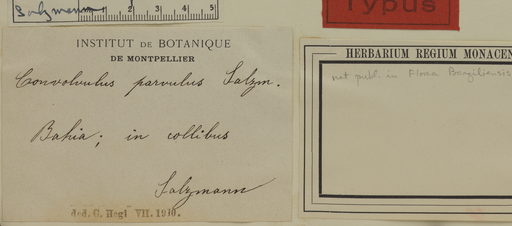 Salzmann 1 2 3 4 5
Typus
INSTITUT DE BOTANIQUE
DE MONTPELLIER
Convolvulus parvulus Salzm.
Bahia; in collibus
Salzmann
ded. G. Hegi VII. 1910.
HERBARIUM REGIUM MONACEN
not publ. in Flora Brasiliensis